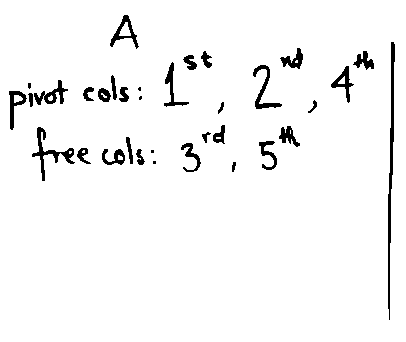 A
pivot cols: 1st, 2nd, 4th
free cols: 3rd, 5th